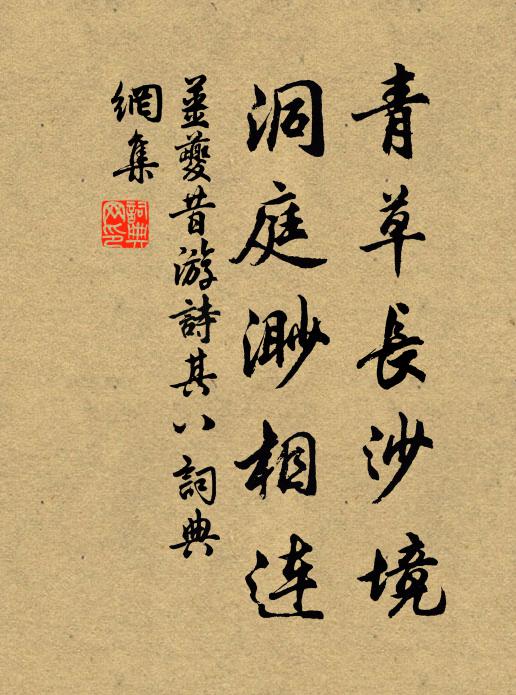 青草長沙境
洞庭渺相連
姜夔昔游詩其八詞典
網集
詞典
网印